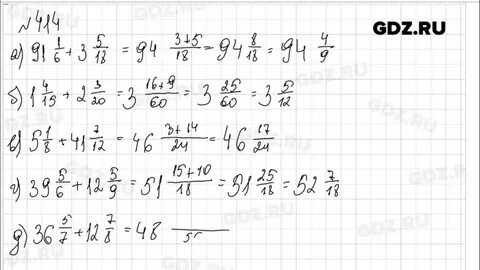 №414
GDZ.RU
а) 91 1/6 + 3 5/18 = 94 3+5/18 = 94 8/18 = 94 4/9
б) 1 4/15 + 2 3/20 = 3 16+9/60 = 3 25/60 = 3 5/12
в) 5 1/8 + 41 7/12 = 46 3+14/24 = 46 17/24
г) 39 5/6 + 12 5/9 = 51 15+10/18 = 51 25/18 = 52 7/18
д) 36 5/7 + 12 7/8 = 48